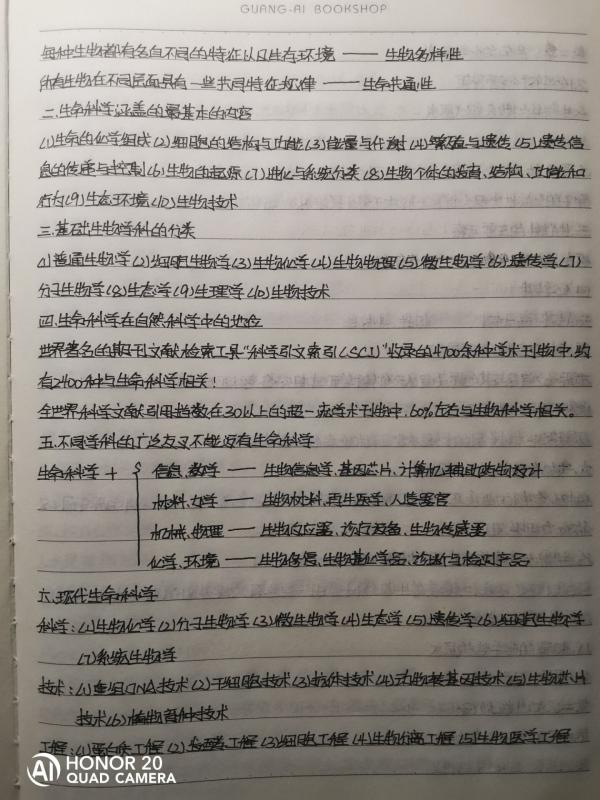 GUANG-AI BOOKSHOP
每种生物都有各自不同的特征以及生存环境 —— 生物多样性
所有生物在不同层面具有一些共同特征规律 —— 生命共通性
二.生命科学涵盖的最基本的内容
(1)生命的化学组成(2)细胞的结构与功能(3)能量与代谢(4)繁殖与遗传(5)遗传信
息的传递与控制(6)生物的起源(7)进化与系统分类(8)生物个体的发育、结构、功能和
行为(9)生态环境(10)生物技术
三.基础生物学科的分类
(1)普通生物学(2)细胞生物学(3)生物化学(4)生物物理(5)微生物学(6)遗传学(7)
分子生物学(8)生态学(9)生理学(10)生物技术
四.生命科学在自然科学中的地位
世界著名的期刊文献检索工具"科学引文索引(SCI)"收录的4700余种学术刊物中,约
有2400种与生命科学相关!
全世界科学文献引用指数在30以上的超一流学术刊物中,60%左右与生物科学相关。
五.不同学科的广泛交叉不能没有生命科学
生命科学 + { 信息、数学 —— 生物信息学、基因芯片、计算机辅助药物设计
材料、力学 —— 生物材料、再生医学、人造器官
机械、物理 —— 生物反应器、诊疗设备、生物传感器
化学、环境 —— 生物修复、生物基化学品、诊断与检测产品
六.现代生命科学
科学:(1)生物化学(2)分子生物学(3)微生物学(4)生态学(5)遗传学(6)细胞生物学
(7)系统生物学
技术:(1)重组DNA技术(2)干细胞技术(3)抗体技术(4)动物转基因技术(5)生物芯片
技术(6)植物育种技术
工程:(1)蛋白质工程(2)发酵工程(3)细胞工程(4)生物信息工程(5)生物医学工程
HONOR 20
QUAD CAMERA